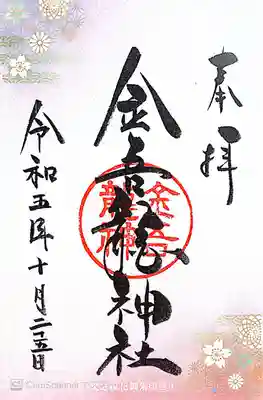 奉拝
金吾龍神社
令和五年十月二十五日
CamScanner